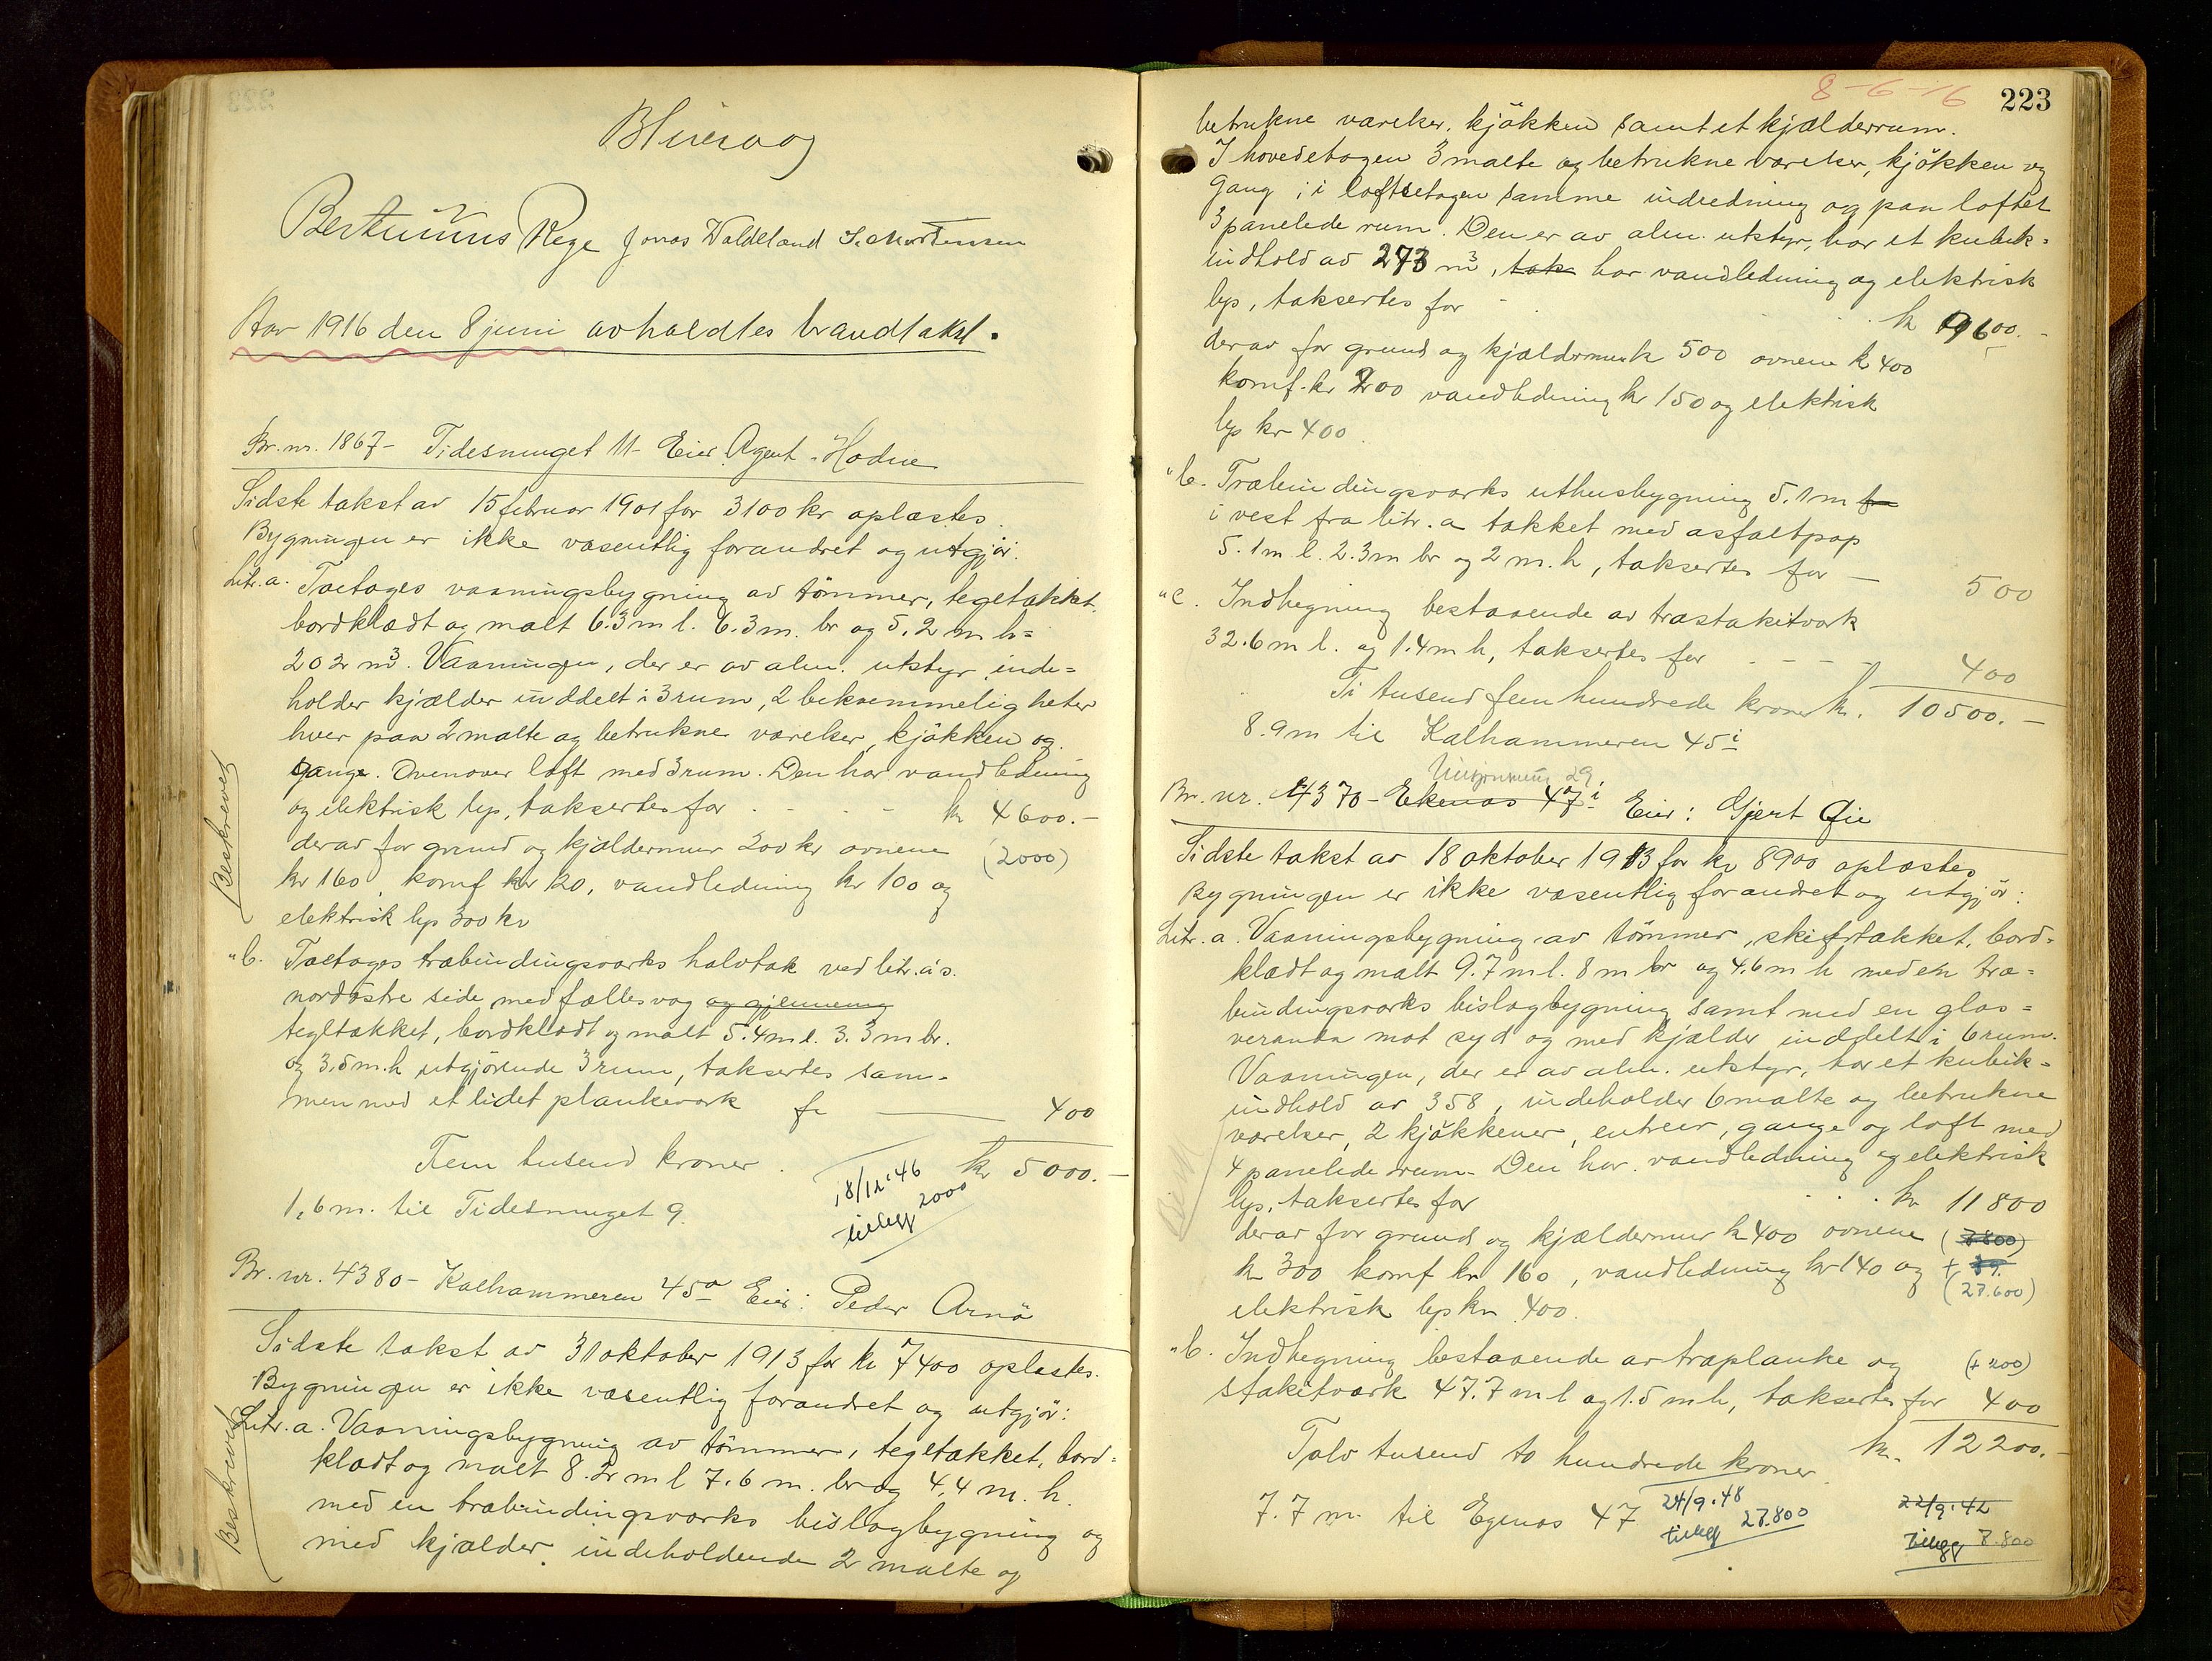 Bertinius Rege Jonas Waldeland S. Mortensen
Aar 1916 den 8 juni avholdtes brandtakst.
Br. nr. 1867 - Tidesmuget 11 - Eier Agent Hodne
Sidste takst av 15 februar 1901 for 3100 kr oplæstes.
Bygningen er ikke væsentlig forandret og utgjör:
Litr. a. Toetages vaaningsbygning av tömmer, tegltækket,
bordklædt og malt 6.3 m l. 6.3 m. br og 5,2 m h =
202 m³. Vaaningen, der er av alm. utstyr, inde=
holder kjælder inddelt i 3 rum, 2 bekvemmeligheter
hver paa 2 malte og betrukne værelser, kjökken og
gange. Ovenover loft med 3 rum. Den har vandledning
og elektrisk lys, takseres for - - - - kr 4600.-
derav for grund og kjældermur 200 kr ovnene (2000)
kr 160, komf kr 120, vandledning kr 100 og
elektrisk lys 300 kr
Beskrevet
" b. Toetages træbindingsværks halvtak ved litr. a's
nordöstre side med fælles væg og gjennemg
tegltækket, bordklædt og malt 5.4 m l. 3.3 m br.
og 3.5 m. h utgjörende 3 rum, takseres sam-
men med et lidet plankeværk for — 400
Fem tusend kroner. kr 5000.-
1,6 m. til Tidesmuget 9.
18/12.46
tillegg 2000
Br. nr. 4380 - Kalhammeren 45 a Eier: Peder Arnö
Sidste takst av 31 oktober 1913 for kr 7400 oplæstes.
Bygningen er ikke væsentlig forandret og utgjör:
Litr. a. Vaaningsbygning av tömmer, tegltækket, bord=
klædt og malt 8.2 m l 7.6 m. br og 4.4 m. h.
med en træbindingsværks bislagbygning og
med kjælder indeholdende 2 malte og
Beskrevet
8-6-16
223
betrukne værelser, kjökken samt et kjælderrum.
I hovedetagen 3 malte og betrukne værelser, kjökken og
gang; i loftsetagen samme indredning og paa loftet
3 panelede rum. Den er av alm. utstyr, har et kubik=
indhold av 273 m³, tak har vandledning og elektrisk
lys, takseres for - kr 9600.-
derav for grund og kjældermur kr 500 ovnene kr 400
komf. kr 200 vandledning kr 150 og elektrisk
lys kr 400.
" b. Træbindingsværks uthusbygning 5.1 m fr
i vest fra litr. a tækket med asfaltpap
5.1 m l. 2.3 m br og 2 m. h, takseres for — 500
" c. Indhegning bestaaende av træstakitværk
32.6 m l. og 1.4 m h, takseres for - - - - 400
Ti tusend fem hundrede kroner kr. 10500.-
8.9 m til Kalhammeren 45 i
29
Br. nr. 4370 - Ekenæs 47 i Eier: Gjert Øie
Sidste takst av 18 oktober 1913 for kr 8900 oplæstes
Bygningen er ikke væsentlig forandret og utgjör:
Litr. a. Vaaningsbygning av tömmer, skifertækket, bord=
klædt og malt 9.7 m l. 8 m br og 4.6 m h med en træ=
bindingsværks bislagbygning samt med en glas=
veranda mot syd og med kjælder inddelt i 6 rum.
Vaaningen, der er av alm. utstyr, har et kubik=
indhold av 358, indeholder 6 malte og betrukne
værelser, 2 kjökkener, entreer, gange og loft med
4 panelede rum. Den har vandledning og elektrisk
lys, takseres for . . . kr 11800
derav for grund og kjældermur kr 400 ovnene (7800)
kr 300 komf kr 160, vandledning kr 140 og +
elektrisk lys kr 400. (27.600)
" b. Indhegning bestaaende av træplanke og (+ 200)
stakitværk 47.7 m l og 1.5 m h, takseres for 400
Tolv tusend to hundrede kroner kr. 12200.-
7.7 m. til Egenæs 47
24/9.48
tillegg 27.800
22/9.42
Tillegg 7.800